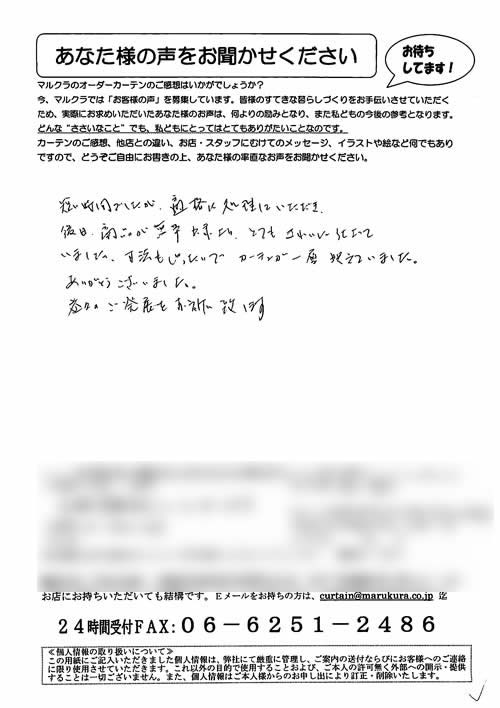 あなた様の声をお聞かせください
お待ち
してます!
マルクラのオーダーカーテンのご感想はいかがでしょうか?
今、マルクラでは「お客様の声」を募集しています。皆様のすてきな暮らしづくりをお手伝いさせていただく
ため、実際にお求めいただいたあなた様のお声は、何よりの励みとなり、また私どもの今後の参考となります。
どんな“ささいなこと”でも、私どもにとってはとてもありがたいことなのです。
カーテンのご感想、他店との違い、お店・スタッフにむけてのメッセージ、イラストや絵など何でもあり
ですので、どうぞご自由にお書きの上、あなた様の率直なお声をお聞かせください。
短時間でしたが、適格に処理していただき、
後日、商品が とても きれいに仕立て
いました。寸法もぴったりで カーテンが一層 映えていました。
ありがとうございました。
益々のご発展をお祈り致します
お店にお持ちいただいても結構です。Eメールをお持ちの方は、curtain@marukura.co.jp 迄
24時間受付FAX:06-6251-2486
≪個人情報の取り扱いについて≫
この用紙にご記入いただきました個人情報は、弊社にて厳重に管理し、ご案内の送付ならびにお客様へのご連絡
に限り使用させていただきます。これ以外の目的で使用することおよび、ご本人の許可無く外部への開示・提供
することは一切ございません。また、個人情報はご本人様からのお申し出により訂正・削除いたします。